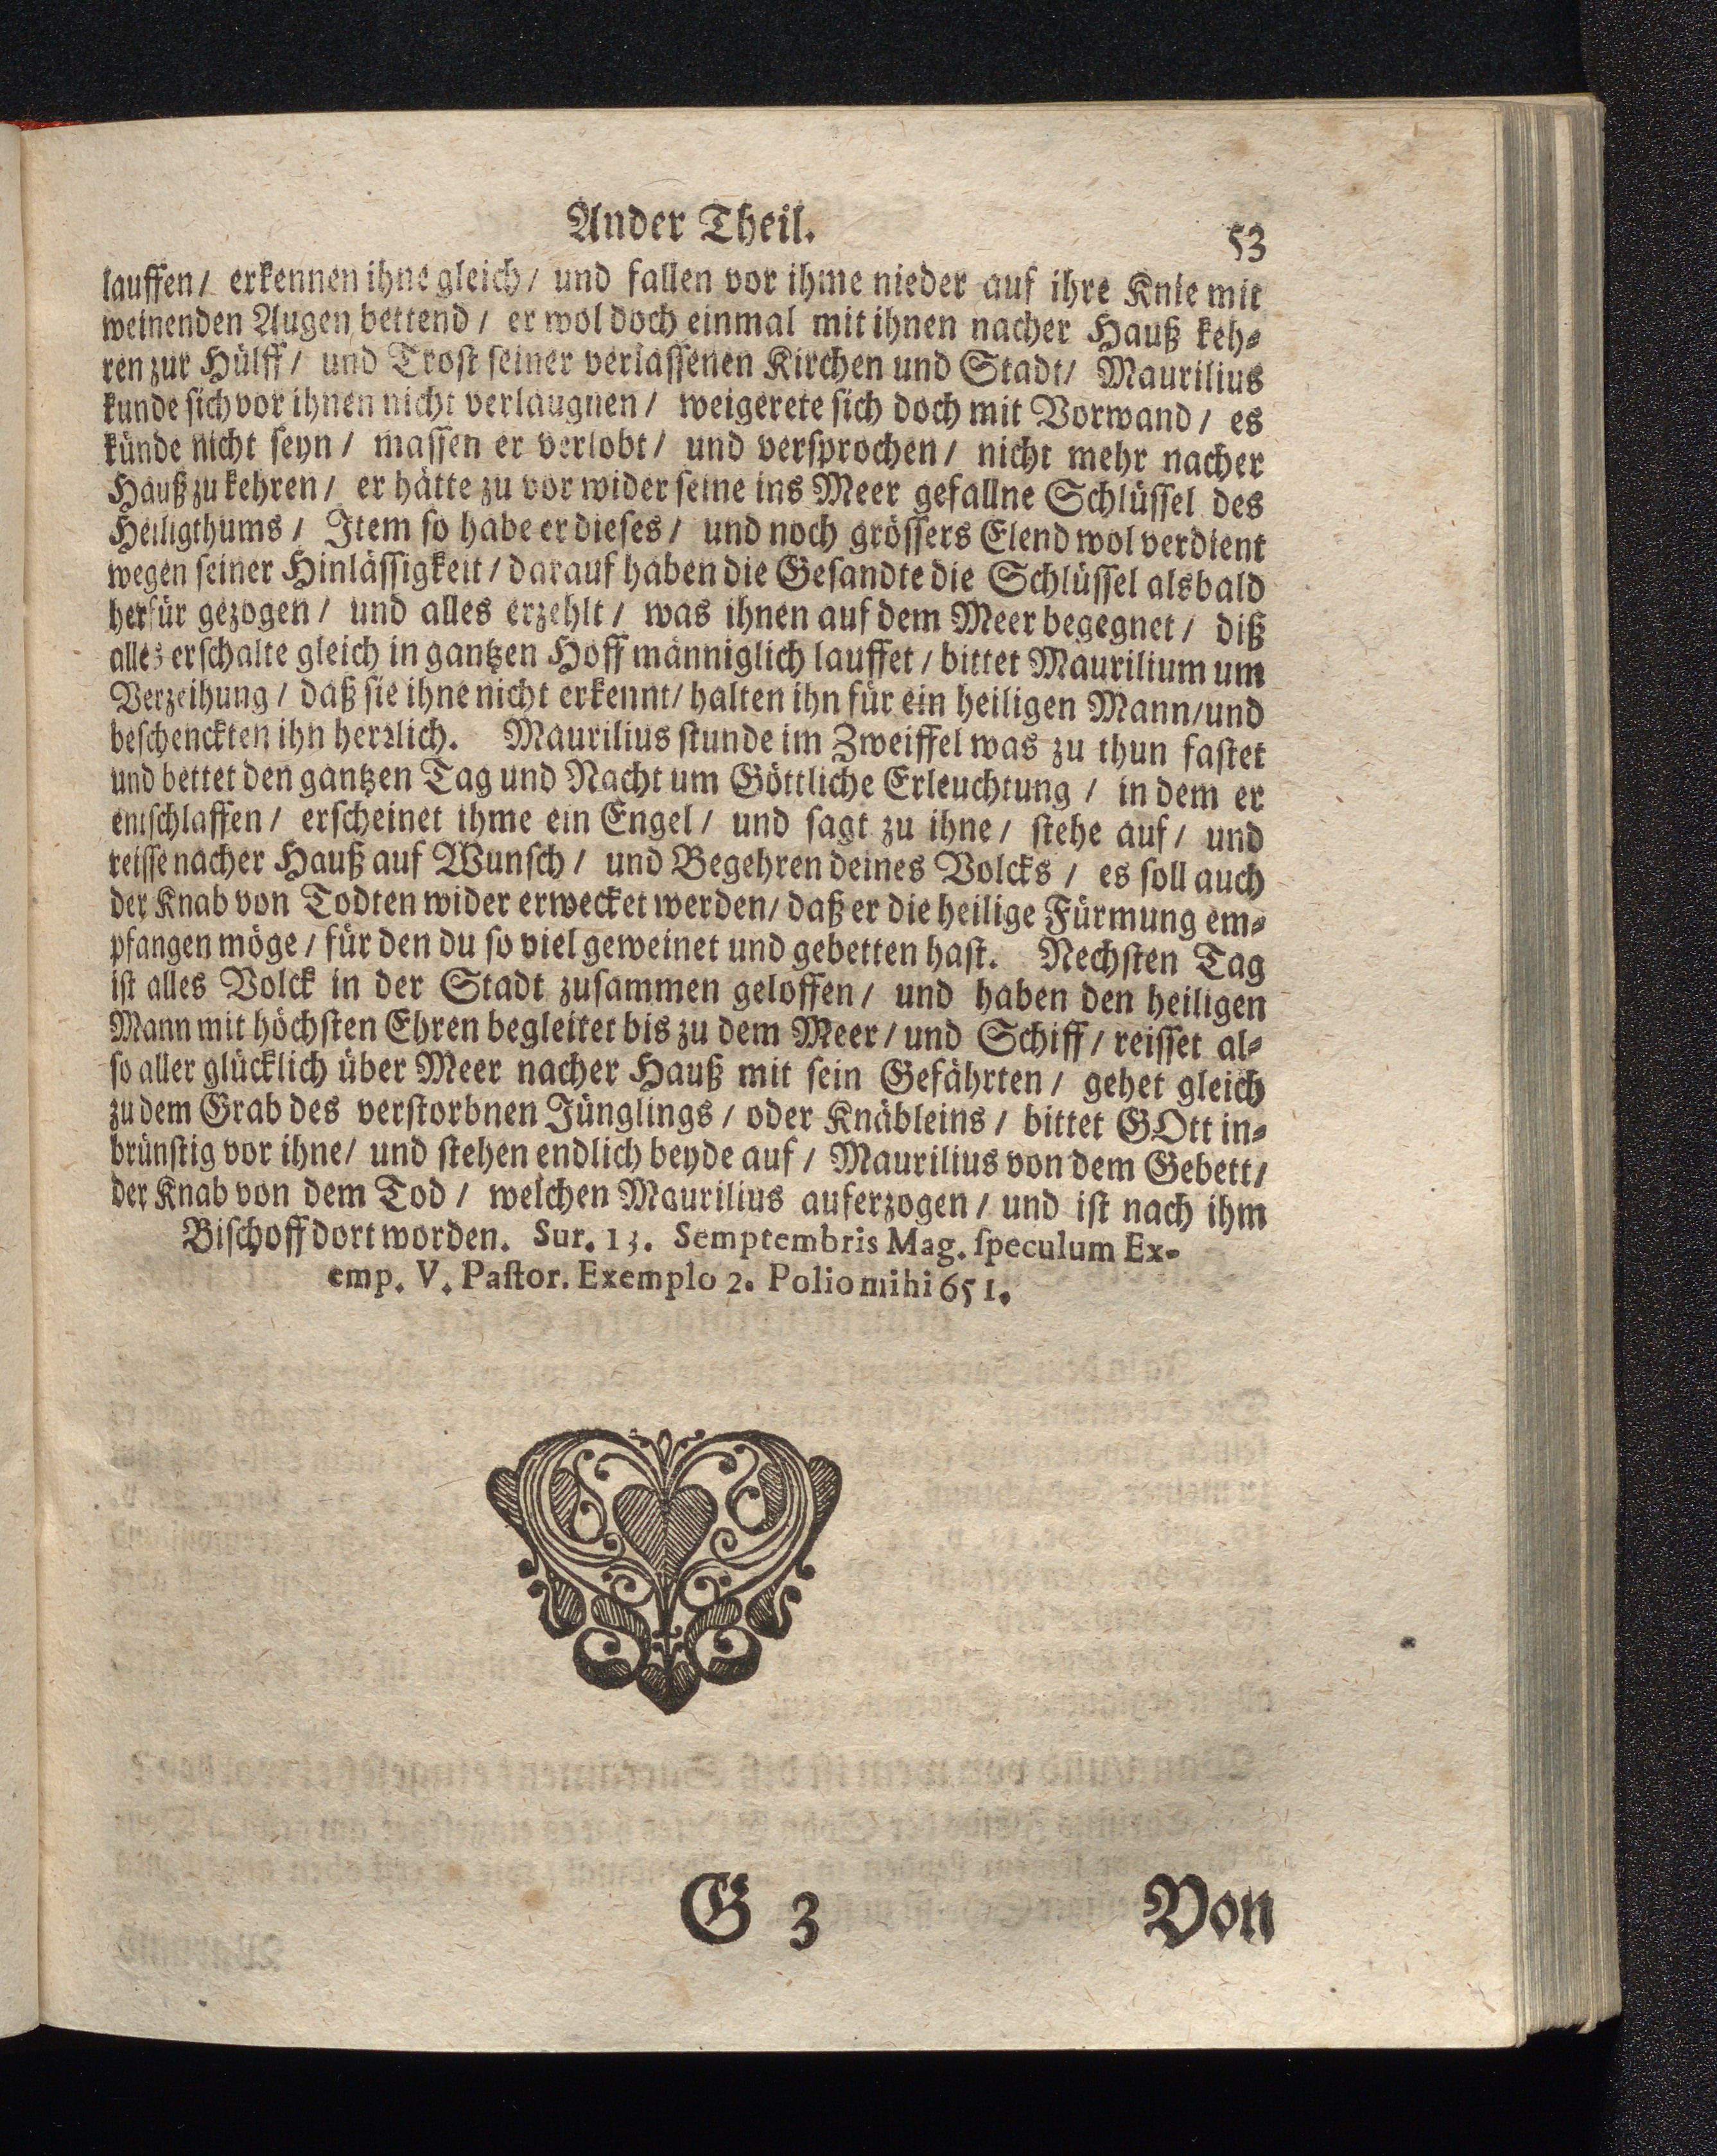 Ander Theil. 53
lauffen / erkennen ihne gleich / und fallen vor ihme nieder auf ihre Knie mit
weinenden Augen bettend / er wol doch einmal mit ihnen nacher Hauß keh-
ren zur Hülff / und Trost seiner verlassenen Kirchen und Stadt / Maurilius
kunde sich vor ihnen nicht verlaugnen / weigerete sich doch mit Vorwand / es
künde nicht seyn / massen er verlobt / und versprochen / nicht mehr nacher
Hauß zu kehren / er hätte zu vor wider seine ins Meer gefallne Schlüssel des
Heiligthums / Item so habe er dieses / und noch grössers Elend wol verdient
wegen seiner Hinlässigkeit / darauf haben die Gesandte die Schlüssel alsbald
herfür gezogen / und alles erzehlt / was ihnen auf dem Meer begegnet / diß
alles erschalte gleich in gantzen Hoff männiglich lauffet / bittet Maurilium um
Verzeihung / daß sie ihne nicht erkennt / halten ihn für ein heiligen Mann / und
beschenckten ihn herrlich. Maurilius stunde im Zweiffel was zu thun fastet
und bettet den gantzen Tag und Nacht um Göttliche Erleuchtung / in dem er
entschlaffen / erscheinet ihme ein Engel / und sagt zu ihne / stehe auf / und
reisse nacher Hauß auf Wunsch / und Begehren deines Volcks / es soll auch
der Knab von Todten wider erwecket werden / daß er die heilige Fürmung em-
pfangen möge / für den du so viel geweinet und gebetten hast. Nechsten Tag
ist alles Volck in der Stadt zusammen geloffen / und haben den heiligen
Mann mit höchsten Ehren begleitet bis zu dem Meer / und Schiff / reisset al-
so aller glücklich über Meer nacher Hauß mit sein Gefährten / gehet gleich
zu dem Grab des verstorbnen Jünglings / oder Knäbleins / bittet GOtt in-
brünstig vor ihne / und stehen endlich beyde auf / Maurilius von dem Gebett /
der Knab von dem Tod / welchen Maurilius auferzogen / und ist nach ihm
Bischoff dort worden. Sur. 13. Semptembris Mag. speculum Ex-
emp. V. Pastor. Exemplo 2. Polio mihi 651.
G 3 Von